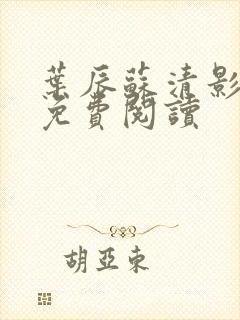 葉辰蘇清影
免費閱讀
胡亞東